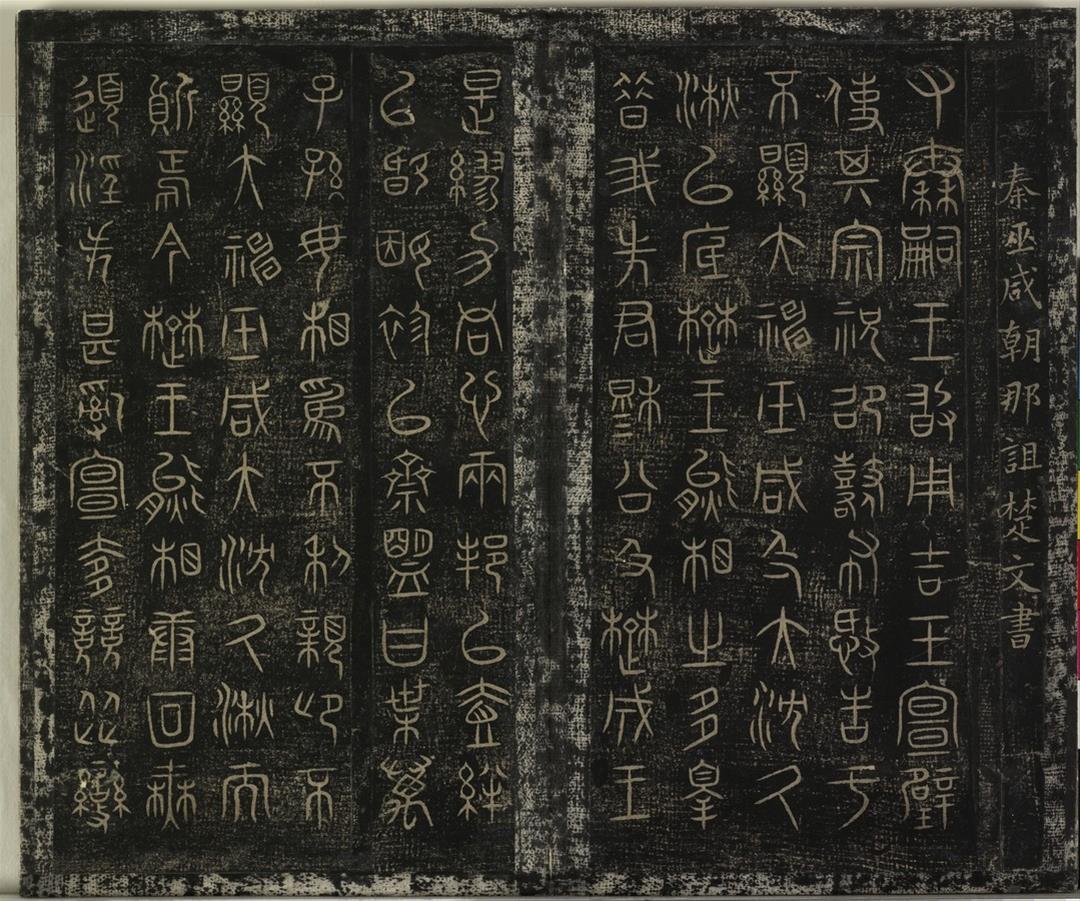 秦巫咸朝那詛楚文書
又秦嗣王敢用吉玉宣璧
使其宗祝邵鼛布憨告于
不顯大神巫咸及大沈久
湫以底楚王熊相之多辠
昔我先君穆公及楚成王
是繆力同心兩邦以壹絆
以婚姻袗以齋盟曰葉萬
子孫毋相為不利親卬不
顯大神巫咸大沈久湫而
質焉今楚王熊相康回無
道淫失甚亂宣奓競從變